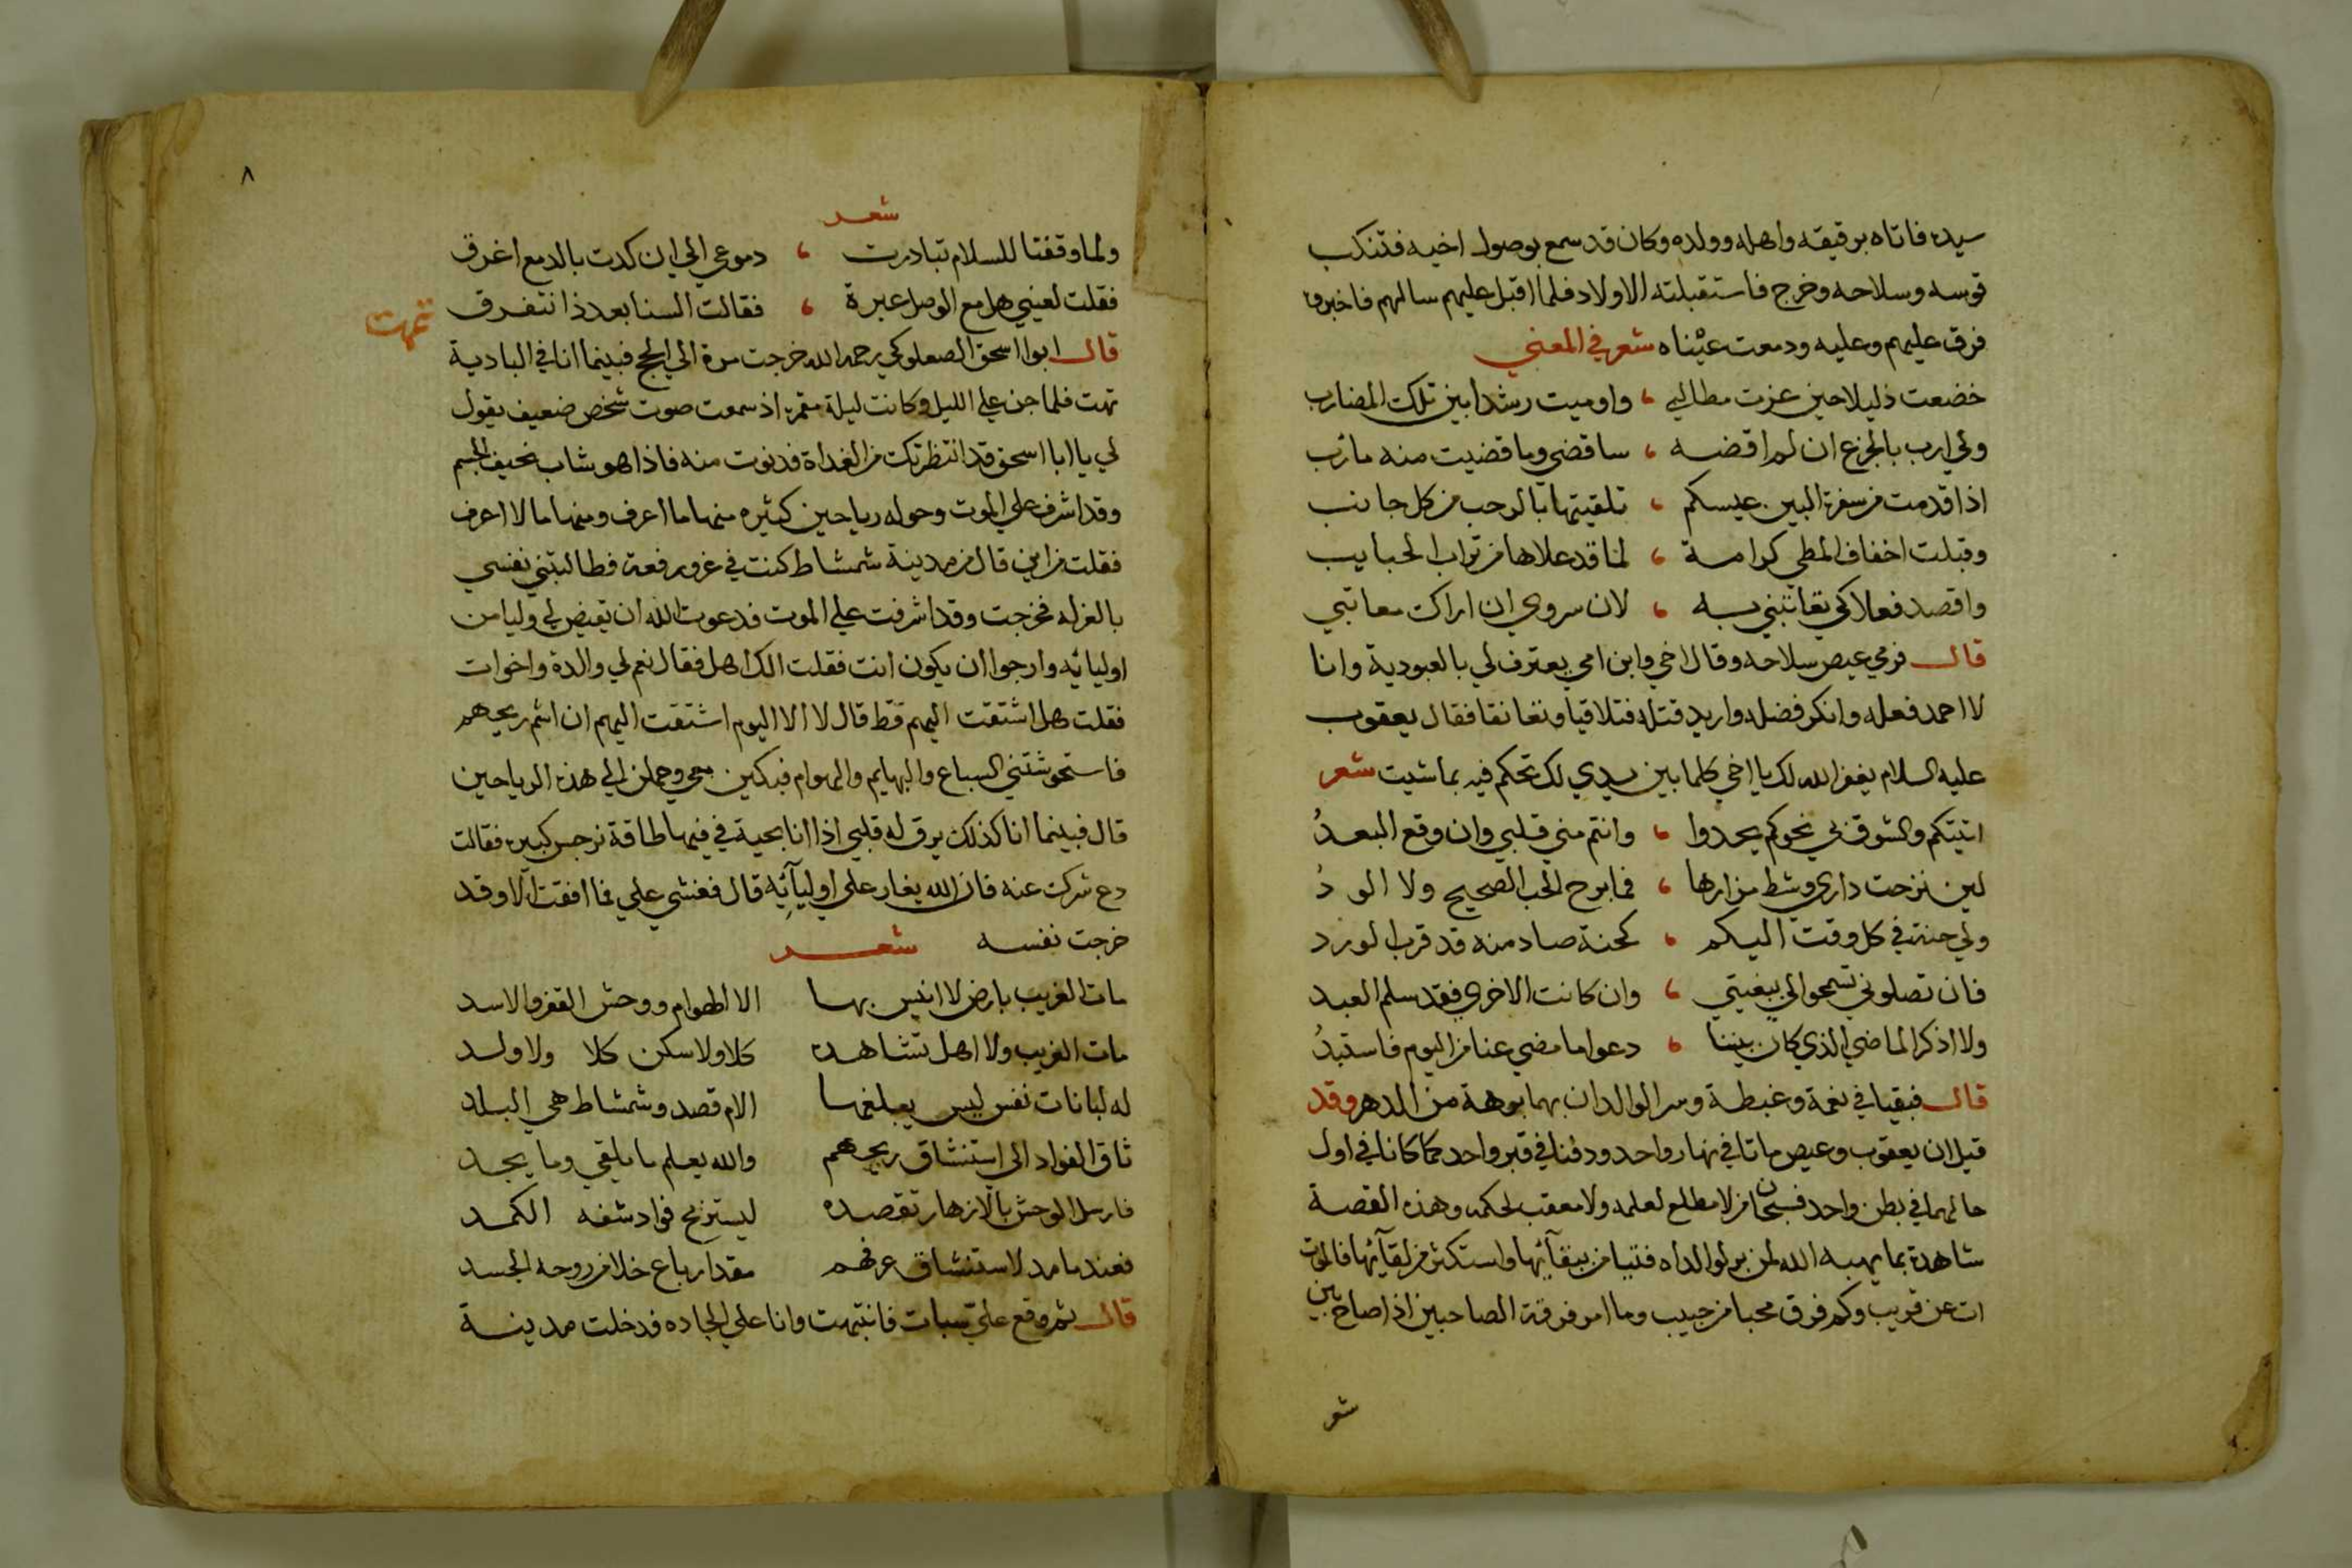 سيده فاتاه برقيقه واهله وولده وكان قد سمع بوصول اخيه فتنكب
قوسه وسلاحه وخرج فاستقبلته الاولاد فلما اقبل عليهم سالهم فاخبروه
فرق عليهم وعليه ودمعت عيناه شعر في المعني
خضعت ذليلا حين عزت مطالبي ، واوميت رشدا بين تلك المضارب
ولي ارب بالجزع ان لم اقضه ، ساقضي وما قضيت منه مآرب
اذا قدمت من سفرة البين عيسكم ، تلقيتها بالرحب من كل جانب
وقبلت اخفاف المطي كرامة ، لما قد علاها من تراب الحبايب
واقصد فعلا كي تعاتبني به ، لان سروري ان اراك معاتبي
قال فرمي عيص سلاحه وقال اخي وابن امي يعترف لي بالعبودية وانا
لا احمد فعله وانكر فضله واريد قتله فتلاقيا وتعانقا فقال يعقوب
عليه السلام يغفر الله لك يا اخي كلما بين يدي لك تحكم فيه بما شيت شعر
اتيتكم والشوق بي نحوكم يحدوا ، وانتم مني قلبي وان وقع البعدُ
لين نزحت داري وشط مزارها ، فما برح الحب الصحيح ولا الودُ
ولي حنة في كل وقت اليكم ، كحنة صاد منه قد قرب الورد
فان تصلوني تسمحوا لي ببغيتي ، وان كانت الاخري فقد سلم العبد
ولا اذكر الماضي الذي كان بيننا ، دعوا ما مضي عنا من اليوم فاستبدُ
قال فبقيا في نعمة وغبطة وسر الوالدان بهما برهة من الدهر وقد
قيل ان يعقوب وعيص ماتا في نهار واحد ودفنا في قبر واحد كما كانا في اول
حالهما في بطن واحد فسبحان من لا مطلع لعلمه ولا معقب لحكمه وهذه القصة
شاهدة بما يهبه الله لمن بر لوالداه فتيامن ببقآئها واستكثر من لقآئها فالموت
ات عن قريب وكم فرق محبا من حبيب وما امر فرقة الصاحبين اذا صاح بين
شعر
٨
شعر
ولما وقفنا للسلام تبادرت ، دموعي الي ان كدت بالدمع اغرق
فقلت لعيني هل مع الوصل عبرة ، فقالت السنا بعد ذا نتفرق
تمت
قال ابوا اسحق الصعلوكي رحمه الله خرجت مرة الي الحج فبينما انا في البادية
تهت فلما جن علي الليل وكانت ليلة مقمرة اذ سمعت صوت شخص ضعيف يقول
لي يا ابا اسحق قد انتظرتك من الغداة فدنوت منه فاذا هو شاب نحيف الجسم
وقد اشرف علي الموت وحوله رياحين كثيره منها ما اعرف ومنها ما لا اعرف
فقلت من اين قال من مدينة شمشاط كنت في عز ورفعة فطالبتني نفسي
بالعزله فخرجت وقد اشرفت علي الموت فدعوت الله ان يقيض لي وليا من
اوليائه وارجوا ان يكون انت فقلت الك اهل فقال نعم لي والدة واخوات
فقلت هل اشتقت اليهم قط قال لا الا اليوم اشتقت اليهم ان اشم ريحهم
فاستحوشتني السباع والبهايم والهوام فبكين معي وحملن الي هذه الرياحين
قال فبينما انا كذلك يرق له قلبي اذا انا بحية في فيها طاقة نرجس كبيرة فقالت
دع شرك عنه فان الله يغار علي اوليآئه قال فغشي علي فما افقت الا وقد
خرجت نفسه شعر
مات الغريب بارض لا انيس بها الا الهوام ووحش القفر والاسد
مات الغريب ولا اهل تشاهده كلا ولا سكن كلا ولا ولد
له لبانات نفس ليس يبلغها الام قصد وشمشاط هي البلد
تاق الفواد الي استنشاق ريحهم والله يعلم ما يلقي وما يجد
فارسل الوحش بالازهار تقصده ليستريح فواد شفه الكمد
فعند ما مد لاستنشاق عرفهم مقدار باع خلا من روحه الجسد
قال ثم وقع علي سبات فانتبهت وانا علي الجاده فدخلت مدينة